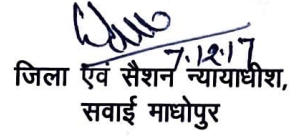 7.12.17
जिला एवं सैशन न्यायाधीश,
सवाई माधोपुर